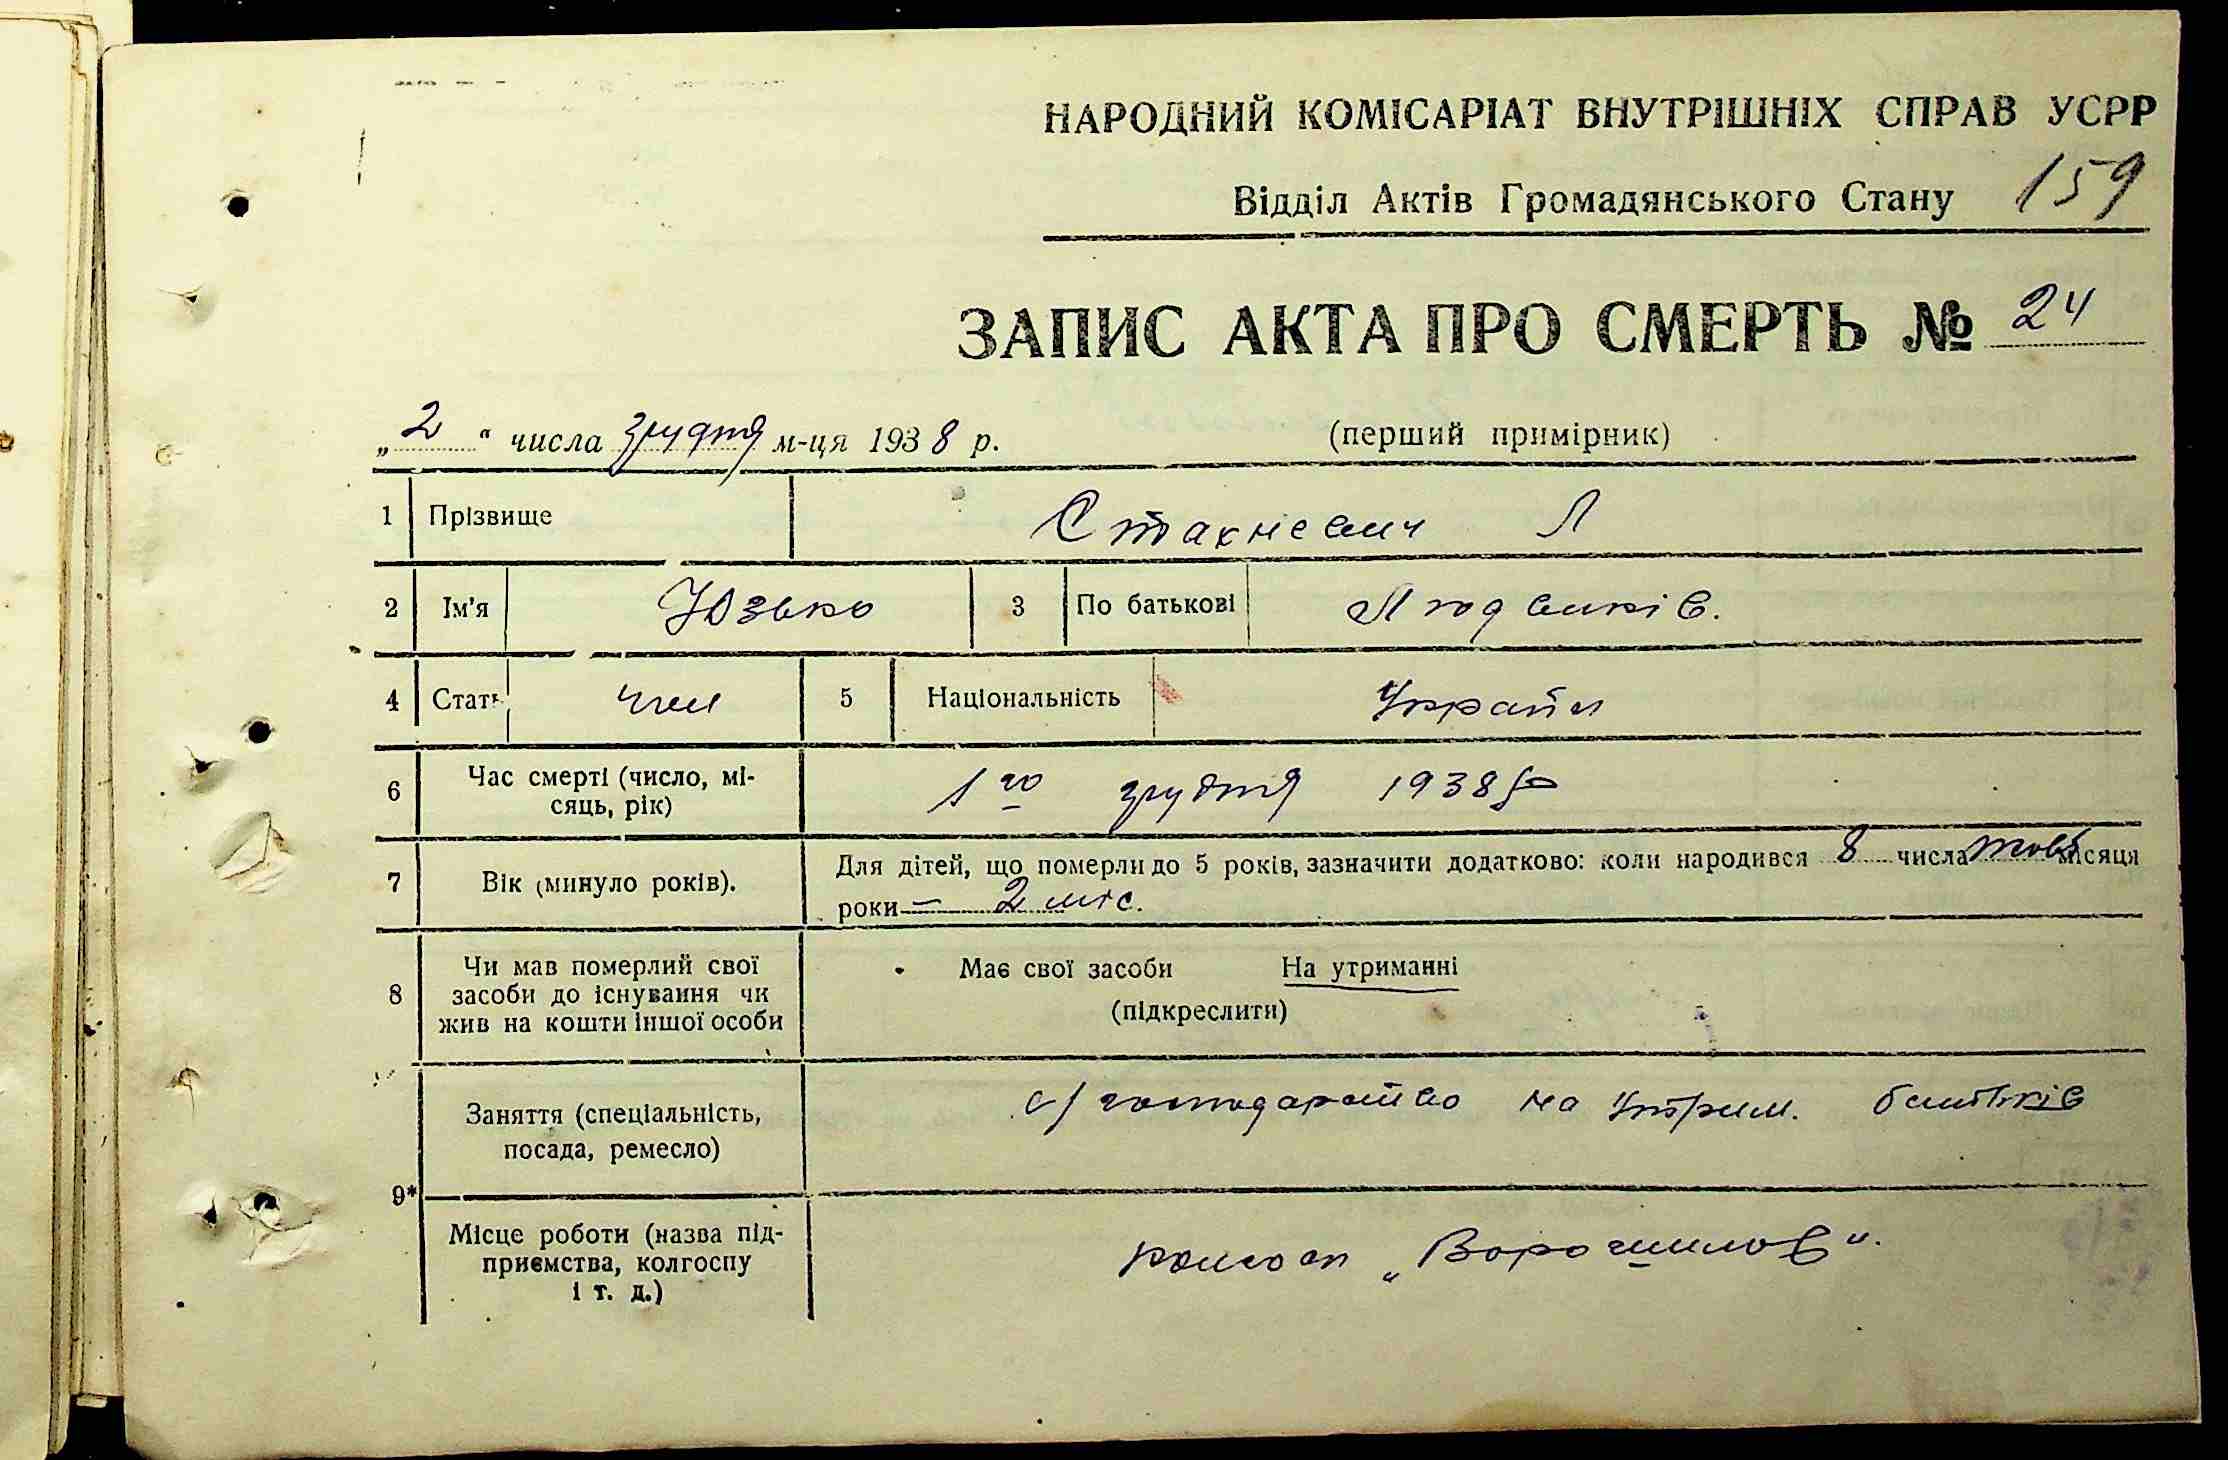 НАРОДНИЙ КОМІСАРІАТ ВНУТРІШНІХ СПРАВ УСРР
Відділ Актів Громадянського Стану 159
ЗАПИС АКТА ПРО СМЕРТЬ № 24
„2“ числа грудня м-ця 1938 р. (перший примірник)
1 Прізвище Стахневич Л
2 Ім'я Юзько 3 По батькові Людвиків.
4 Стать чол 5 Національність Україн
6 Час смерті (число, мі-
сяць, рік) 1го грудня 1938 р
7 Вік (минуло років). Для дітей, що померли до 5 років, зазначити додатково: коли народився 8 числа жовт місяця
роки — 2 міс.
8 Чи мав померлий свої
засоби до існування чи
жив на кошти іншої особи
Має свої засоби На утриманні
(підкреслити)
9* Заняття (спеціальність,
посада, ремесло) с/господарство на утрим. батьків
Місце роботи (назва під-
приємства, колгоспу
і т. д.) колгосп „Ворошилов“.